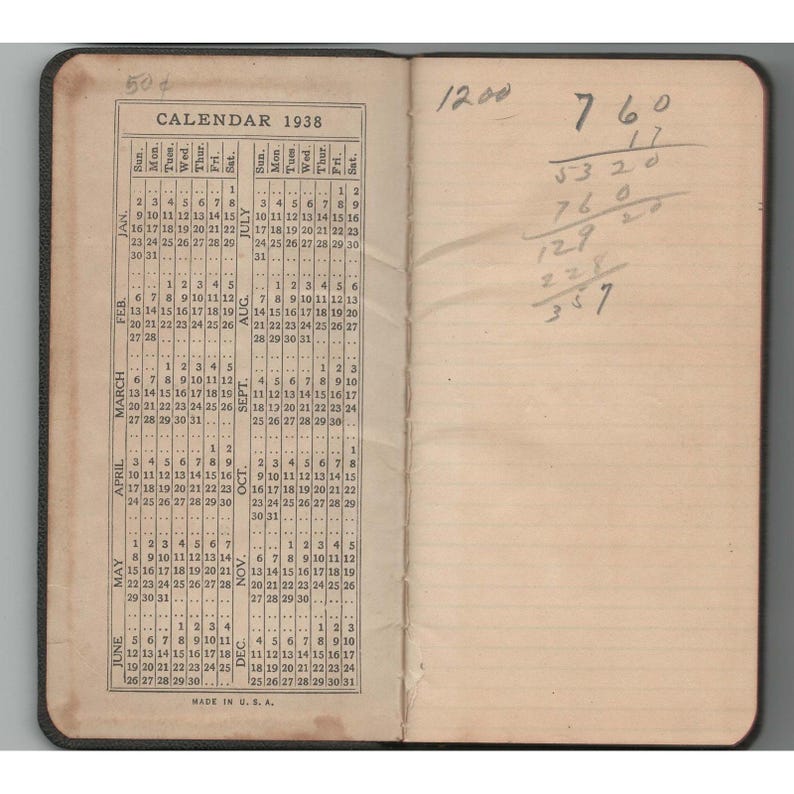 50¢
CALENDAR 1938
Sun. Mon. Tues. Wed. Thur. Fri. Sat. Sun. Mon Tues. Wed. Thur. Fri. Sat.
JAN.
1
2 3 4 5 6 7 8
9 10 11 12 13 14 15
16 17 18 19 20 21 22
23 24 25 26 27 28 29
30 31
FEB.
1 2 3 4 5
6 7 8 9 10 11 12
13 14 15 16 17 18 19
20 21 22 23 24 25 26
27 28
MARCH
1 2 3 4 5
6 7 8 9 10 11 12
13 14 15 16 17 18 19
20 21 22 23 24 25 26
27 28 29 30 31
APRIL
1 2
3 4 5 6 7 8 9
10 11 12 13 14 15 16
17 18 19 20 21 22 23
24 25 26 27 28 29 30
MAY
1 2 3 4 5 6 7
8 9 10 11 12 13 14
15 16 17 18 19 20 21
22 23 24 25 26 27 28
29 30 31
JUNE
1 2 3 4
5 6 7 8 9 10 11
12 13 14 15 16 17 18
19 20 21 22 23 24 25
26 27 28 29 30
JULY
1 2
3 4 5 6 7 8 9
10 11 12 13 14 15 16
17 18 19 20 21 22 23
24 25 26 27 28 29 30
31
AUG.
1 2 3 4 5 6
7 8 9 10 11 12 13
14 15 16 17 18 19 20
21 22 23 24 25 26 27
28 29 30 31
SEPT.
1 2 3
4 5 6 7 8 9 10
11 12 13 14 15 16 17
18 19 20 21 22 23 24
25 26 27 28 29 30
OCT.
1
2 3 4 5 6 7 8
9 10 11 12 13 14 15
16 17 18 19 20 21 22
23 24 25 26 27 28 29
30 31
NOV.
1 2 3 4 5
6 7 8 9 10 11 12
13 14 15 16 17 18 19
20 21 22 23 24 25 26
27 28 29 30
DEC.
1 2 3
4 5 6 7 8 9 10
11 12 13 14 15 16 17
18 19 20 21 22 23 24
25 26 27 28 29 30 31
MADE IN U. S. A.
1200
760
17
5320
760
12920
228
357